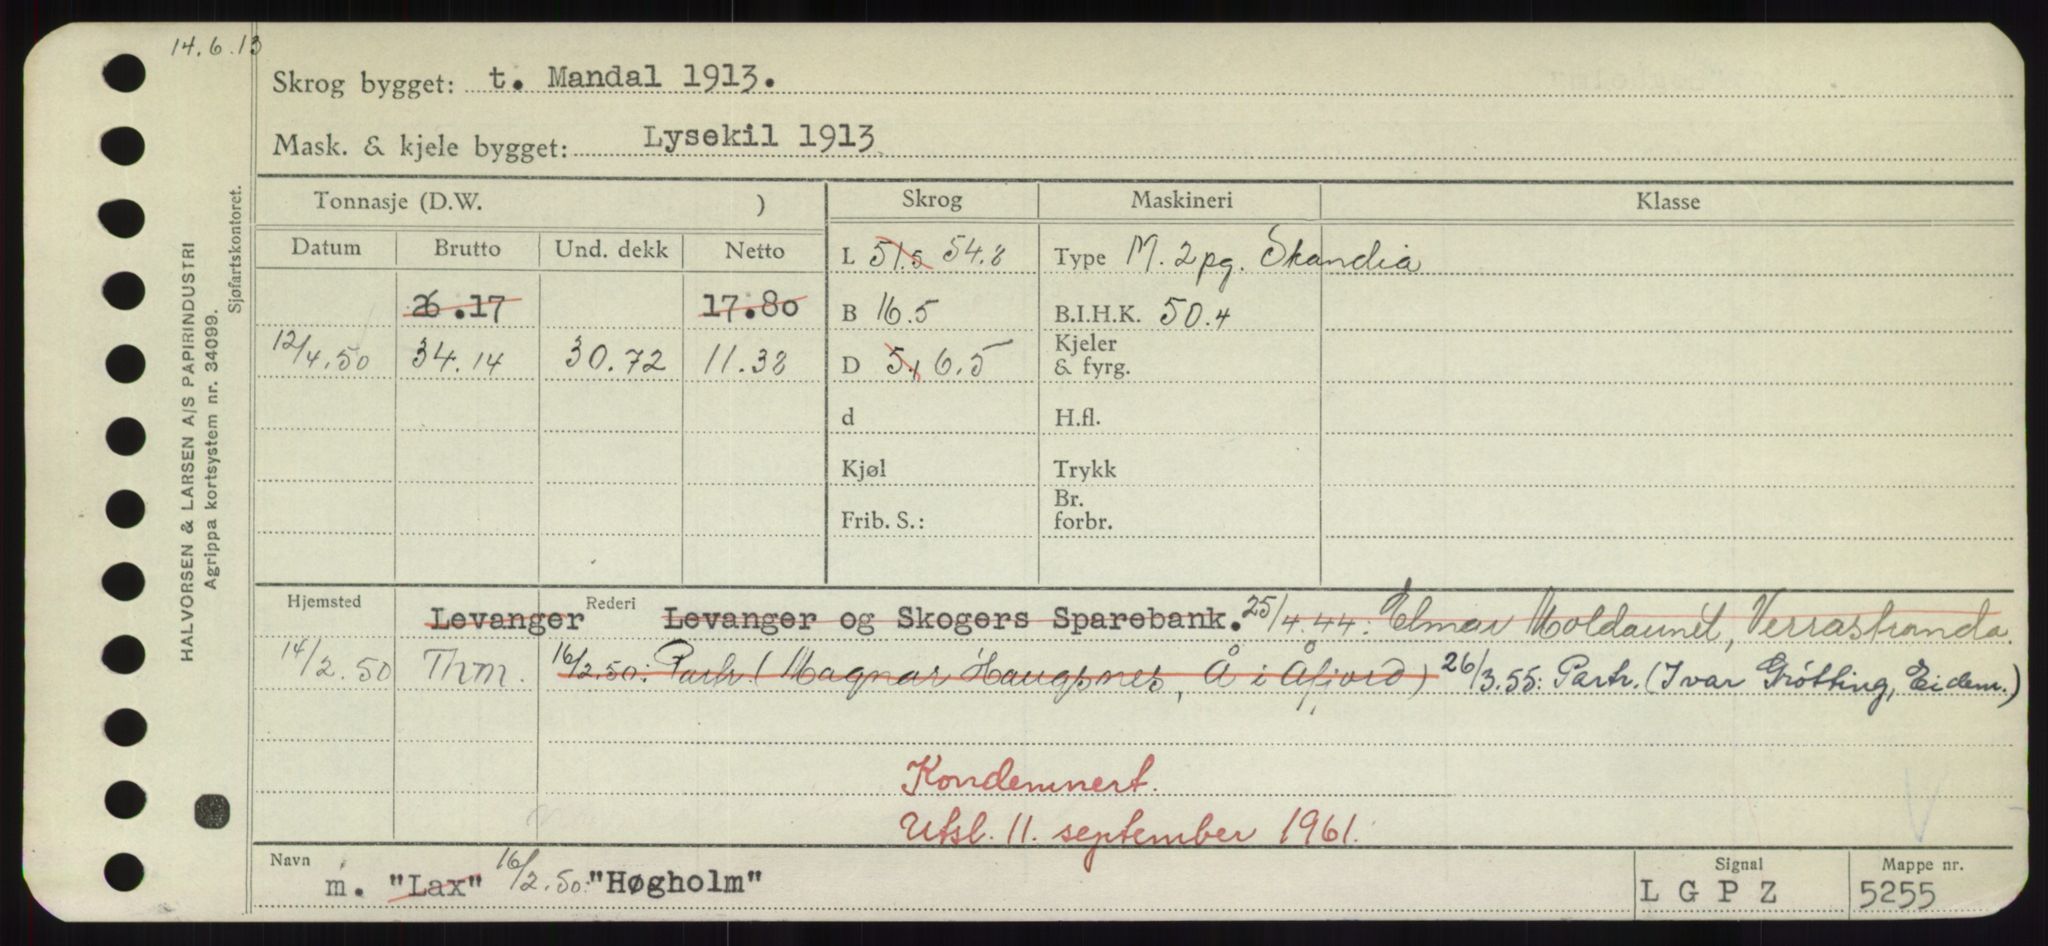 14.6.13
Skrog bygget: t. Mandal 1913.
Mask. & kjele bygget: Lysekil 1913
Tonnasje (D.W. ) Skrog Maskineri Klasse
Datum Brutto Und. dekk Netto
L 51.5 54.8 Type M. 2 pg. Skandia
26.17 17.80 B 16.5 B.I.H.K. 50.4
12/4.50 34.14 30.72 11.38 D 5,1 6.5 Kjeler & fyrg.
d H.fl.
Kjøl Trykk
Frib. S.: Br. forbr.
Hjemsted Rederi
Levanger Levanger og Skogers Sparebank. 25/4.44: Elmar Verrastranda.
14/2.50 Thm. 16/2.50: Partr. (Magnar Haugsnes, Å i Åfjord) 26/3.55: Partr. (Ivar Grøtting, Eidem.)
Kondemnert.
Utsl. 11. september 1961.
Navn Signal Mappe nr.
m. "Lax" 16/2.50: "Høgholm" L G P Z 5255
HALVORSEN & LARSEN A/S PAPIRINDUSTRI
Agrippa kortsystem nr. 34099.
Sjøfartskontoret.